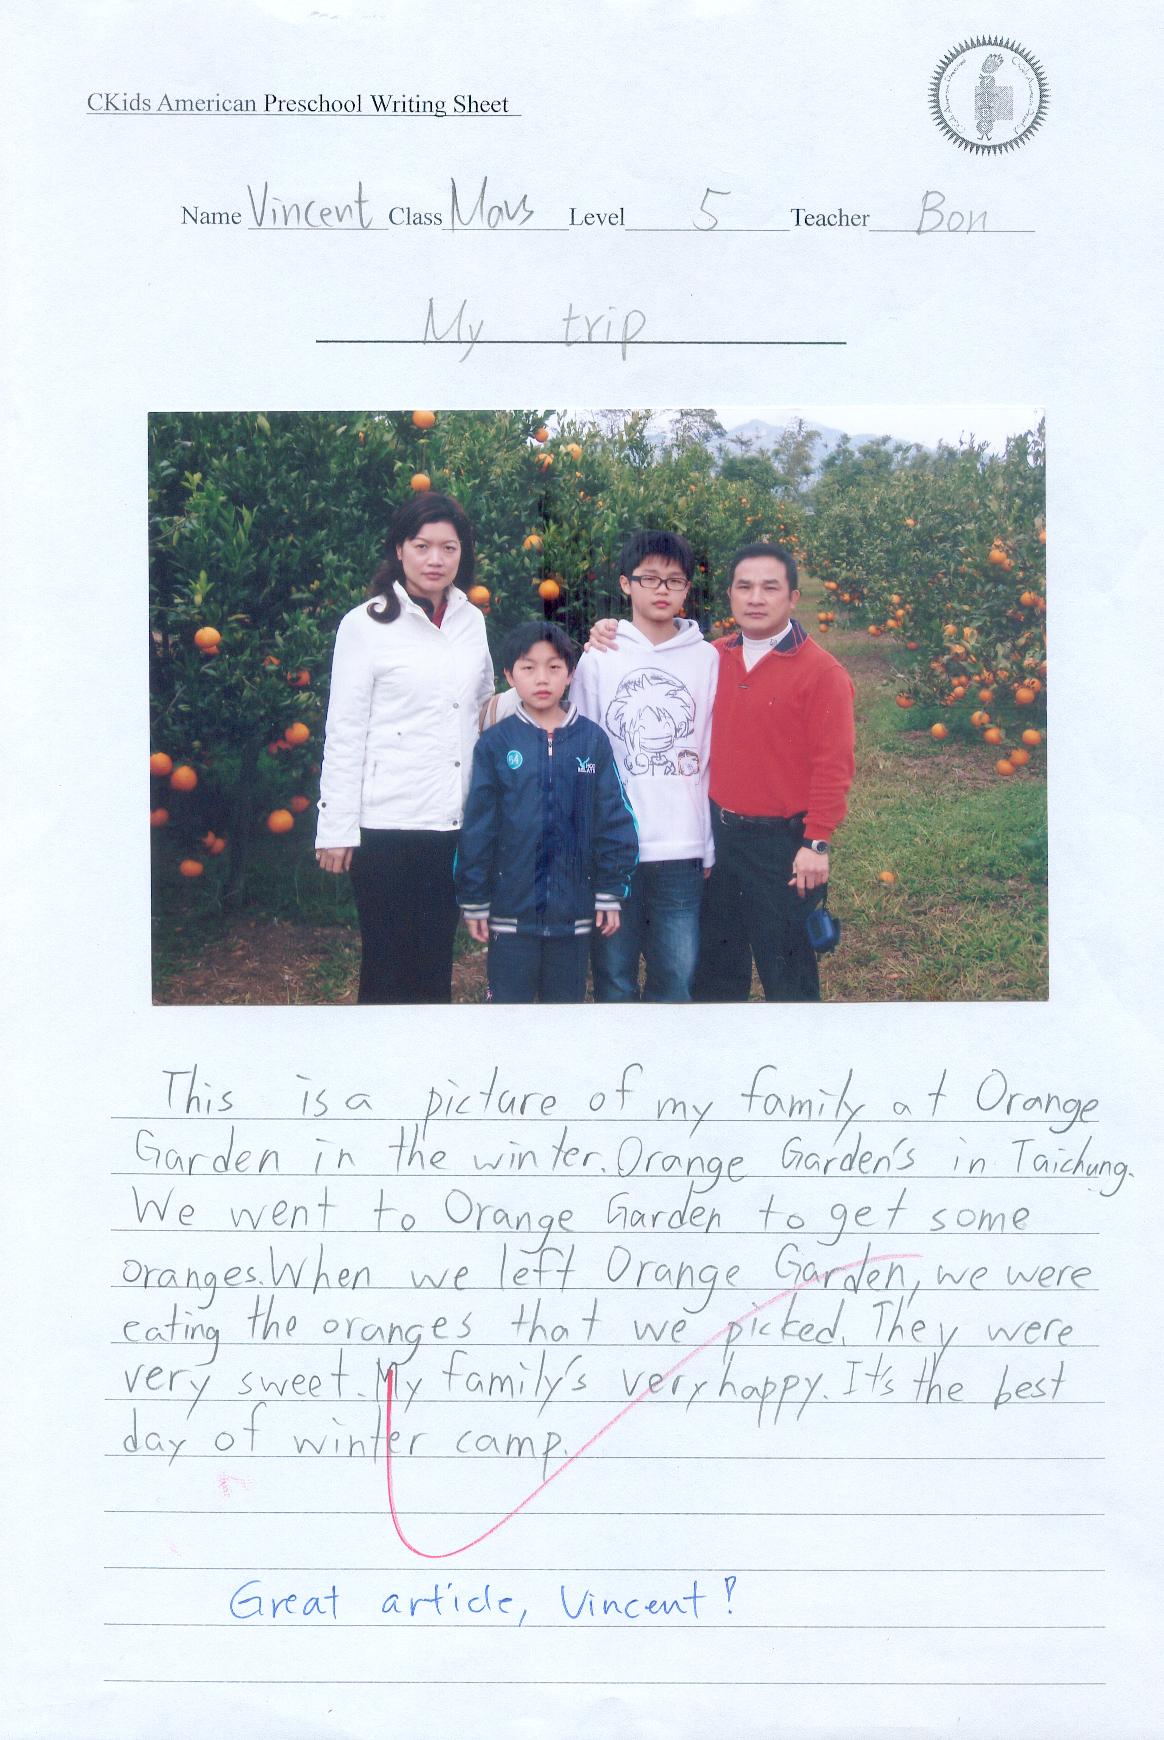 CKids American Preschool Writing Sheet
Name Vincent Class Mavs Level 5 Teacher Bon
My trip
64
This is a picture of my family at Orange
Garden in the winter. Orange Garden's in Taichung.
We went to Orange Garden to get some
oranges. When we left Orange Garden, we were
eating the oranges that we picked. They were
very sweet. My family's very happy. It's the best
day of winter camp.
Great article, Vincent!